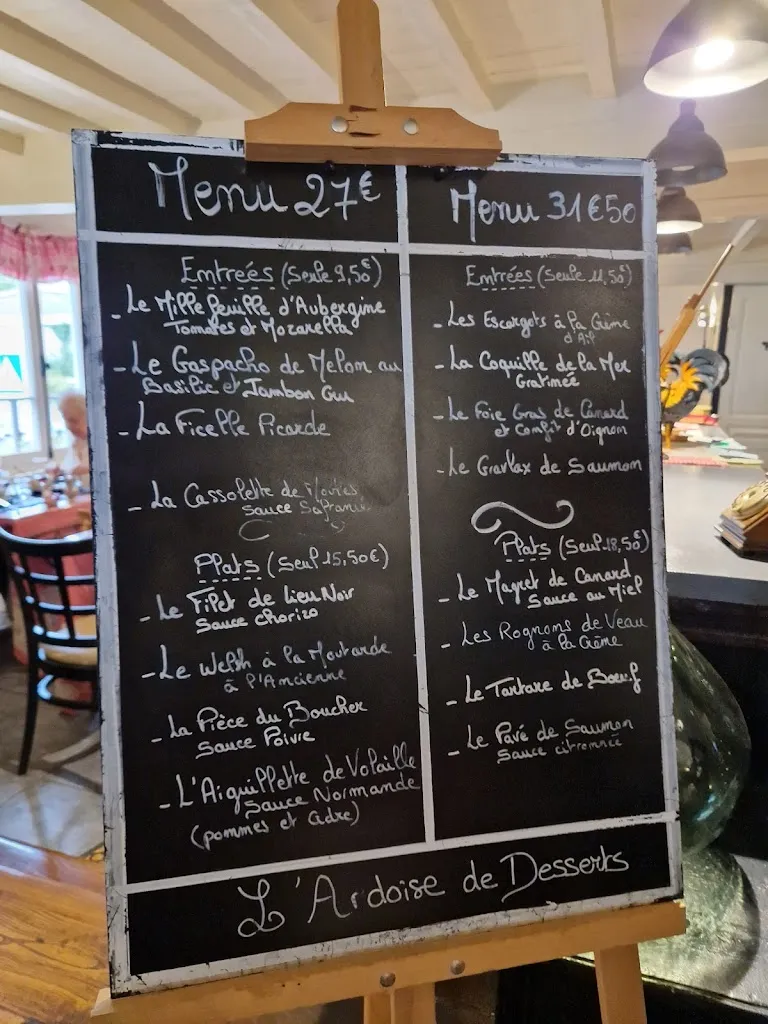 Menu 27€
Entreés (Seule 9,50€)
- Le Mille feuille d'Aubergine
Tomates et Mozarella
- Le Gaspacho de Melon au
Basilic et Jambon Cru
- La Ficelle Picarde
- La Cassolette de Moules
Sauce Safranée
Plats (Seul 15,50€)
- Le Filet de Lieu Noir
Sauce Chorizo
- Le Welsh à la Moutarde
à l'Ancienne
- La Pièce du Boucher
Sauce Poivre
- L'Aiguillette de Volaille
Sauce Normande
(pommes et Cidre)
Menu 31€50
Entrées (Seule 11,50)
- Les Escargots à la Crème
d'Ail
- La Coquille de la Mer
Gratinée
- Le Foie Gras de Canard
et Confit d'Oignon
- Le Gravlax de Saumon
Plats (Seul 18,50€)
- Le Magret de Canard
Sauce au Miel
- Les Rognons de Veau
à la Crème
- Le Tartare de Boeuf
- Le Pavé de Saumon
Sauce citronnée
L'Ardoise de Desserts